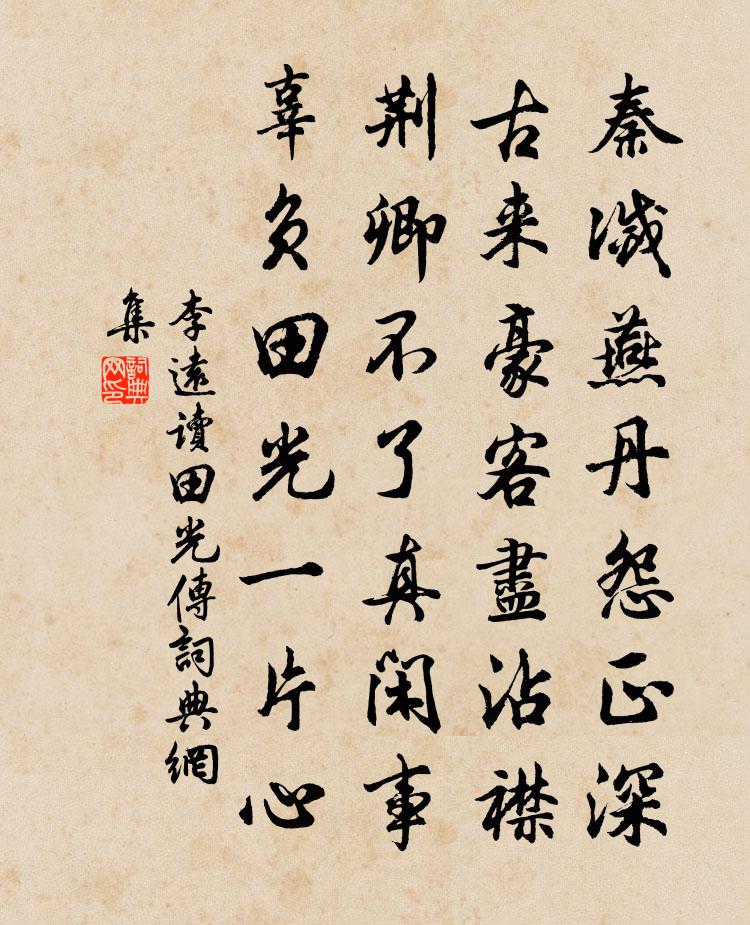 秦滅燕丹怨正深
古来豪客盡沾襟
荆卿不了真闲事
辜負田光一片心
李遠讀田光傳詞典網
集
詞典
网印